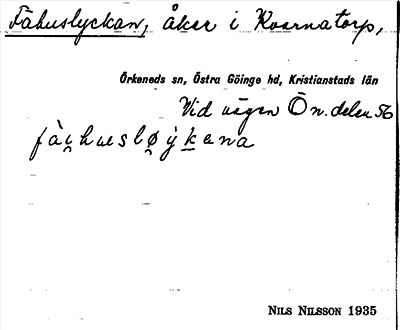 Fähuslyckan, åker i Kvarnatorp,
Örkeneds sn, Östra Göinge hd, Kristianstads län
Vid vägen Ö n. delen 56
fä̀hu̇sløýkena
NILS NILSSON 1935